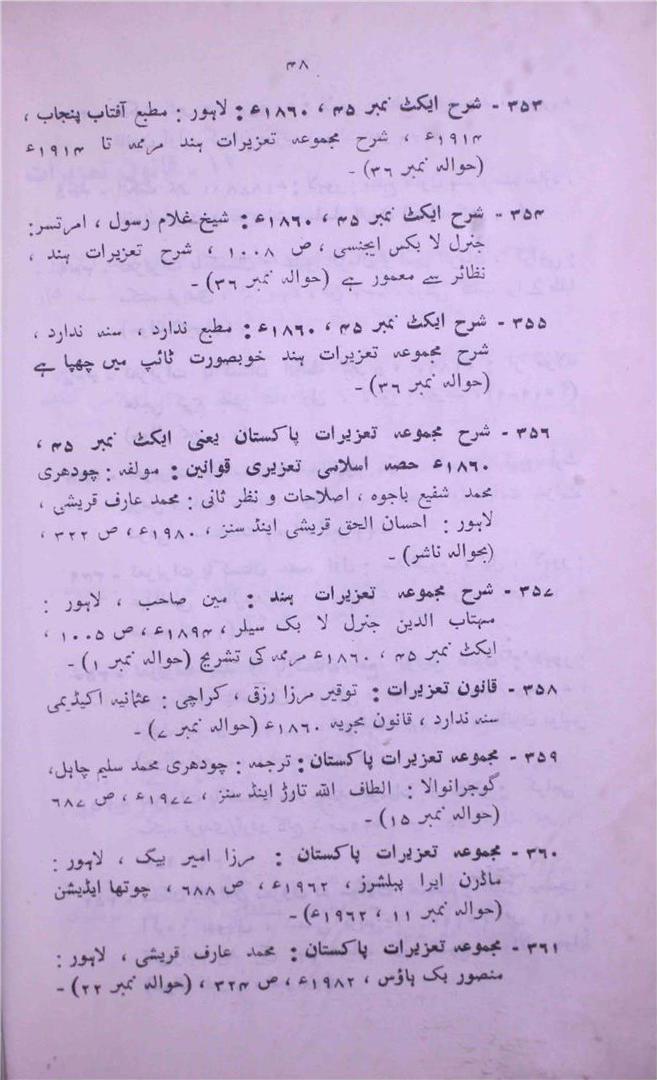 ۴۸
۳۵۳ - شرح ایکٹ نمبر ۴۵ ، ۱۸۶۰ء : لاہور : مطبع آفتاب پنجاب ،
۱۹۱۴ء ، شرح مجموعہ تعزیرات ہند مرممہ تا ۱۹۱۴ء
(حوالہ نمبر ۳۶) -
۳۵۴ - شرح ایکٹ نمبر ۴۵ ، ۱۸۶۰ء : شیخ غلام رسول ، امرتسر:
جنرل لا بکس ایجنسی ، ص ۱۰۰۸ ، شرح تعزیرات ہند ،
نظائر سے معمور ہے (حوالہ نمبر ۳۶) -
۳۵۵ - شرح ایکٹ نمبر ۴۵ ، ۱۸۶۰ء : مطبع ندارد ، سنہ ندارد ،
شرح مجموعہ تعزیرات ہند خوبصورت ٹائپ میں چھپا ہے
(حوالہ نمبر ۳۶) -
۳۵۶ - شرح مجموعہ تعزیرات پاکستان یعنی ایکٹ نمبر ۴۵ ،
۱۸۶۰ء حصہ اسلامی تعزیری قوانین : مولفہ : چودھری
محمد شفیع باجوہ ، اصلاحات و نظر ثانی : محمد عارف قریشی ،
لاہور : احسان الحق قریشی اینڈ سنز ، ۱۹۸۰ء ، ص ۳۲۲ ،
(بحوالہ ناشر) -
۳۵۷ - شرح مجموعہ تعزیرات ہند : مین صاحب ، لاہور :
مہتاب الدین جنرل لا بک سیلر ، ۱۸۹۴ء ، ص ۱۰۰۵ ،
ایکٹ نمبر ۴۵ ، ۱۸۶۰ء مرممہ کی تشریح (حوالہ نمبر ۱) -
۳۵۸ - قانون تعزیرات : توقیر مرزا رزقی ، کراچی : عثمانیہ اکیڈیمی
سنہ ندارد ، قانون مجریہ ۱۸۶۰ء (حوالہ نمبر ۷) -
۳۵۹ - مجموعہ تعزیرات پاکستان : ترجمہ : چودھری محمد سلیم چاہل،
گوجرانوالا : الطاف اللہ تارڑ اینڈ سنز ، ۱۹۷۷ء ، ص ۶۸۷
(حوالہ نمبر ۱۵) -
۳۶۰ - مجموعہ تعزیرات پاکستان : مرزا امیر بیگ ، لاہور :
ماڈرن ایرا پبلشرز ، ۱۹۶۲ء ، ص ۶۸۸ ، چوتھا ایڈیشن
(حوالہ نمبر ۱۱ ، ۱۹۶۲ء) -
۳۶۱ - مجموعہ تعزیرات پاکستان : محمد عارف قریشی ، لاہور :
منصور بک ہاؤس ، ۱۹۸۲ء ، ص ۳۲۴ ، (حوالہ نمبر ۲۲) -